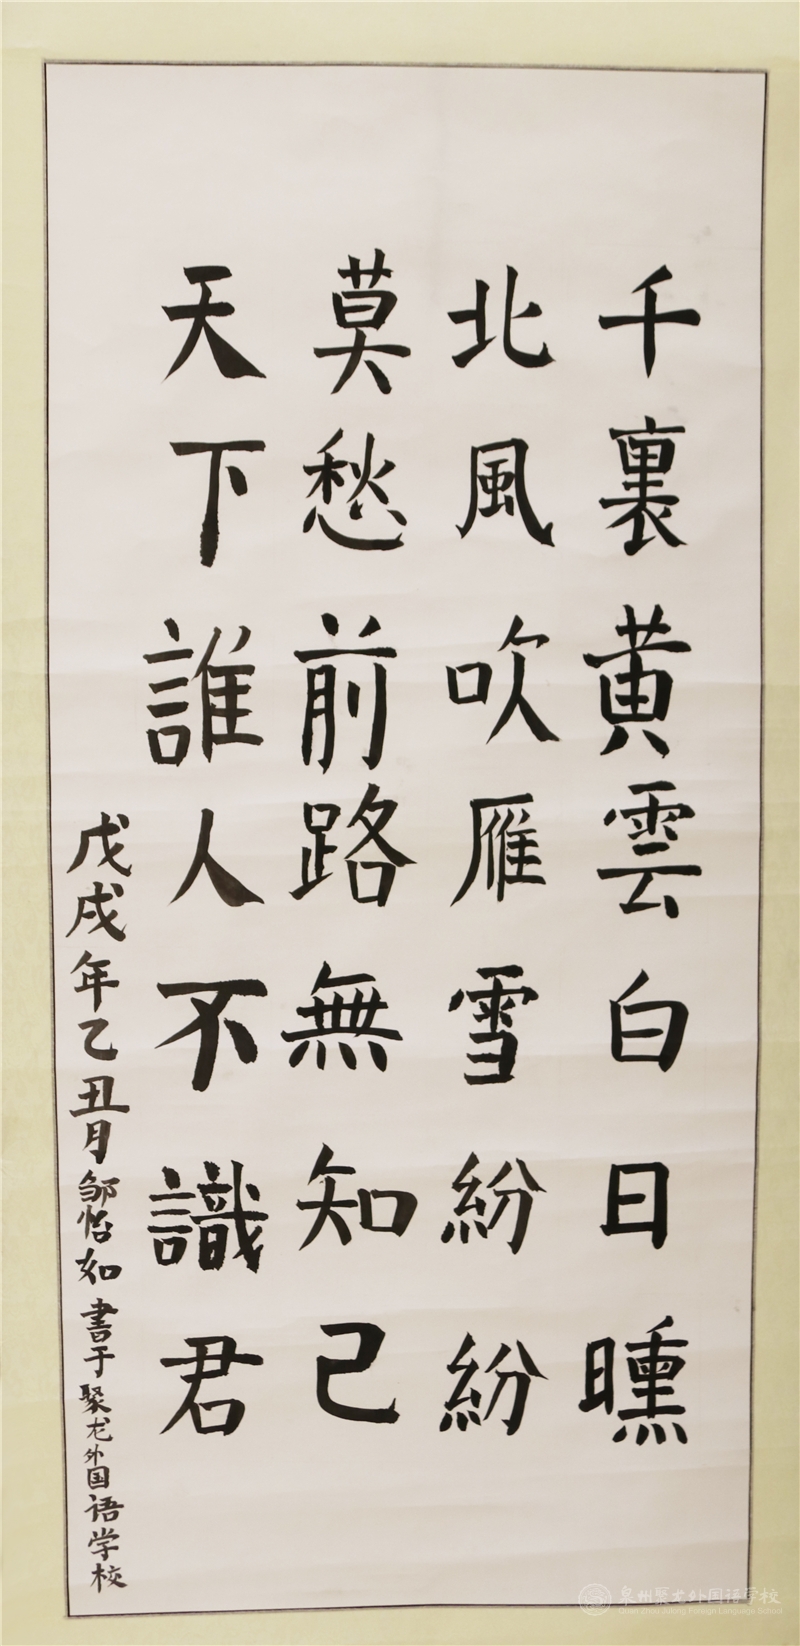 千裏黄雲白日曛
北風吹雁雪紛紛
莫愁前路無知己
天下誰人不識君
戊戌年乙丑月邹怡如書于聚龙外国语学校
泉州聚龙外国语学校
Quan Zhou Julong Foreign Language School